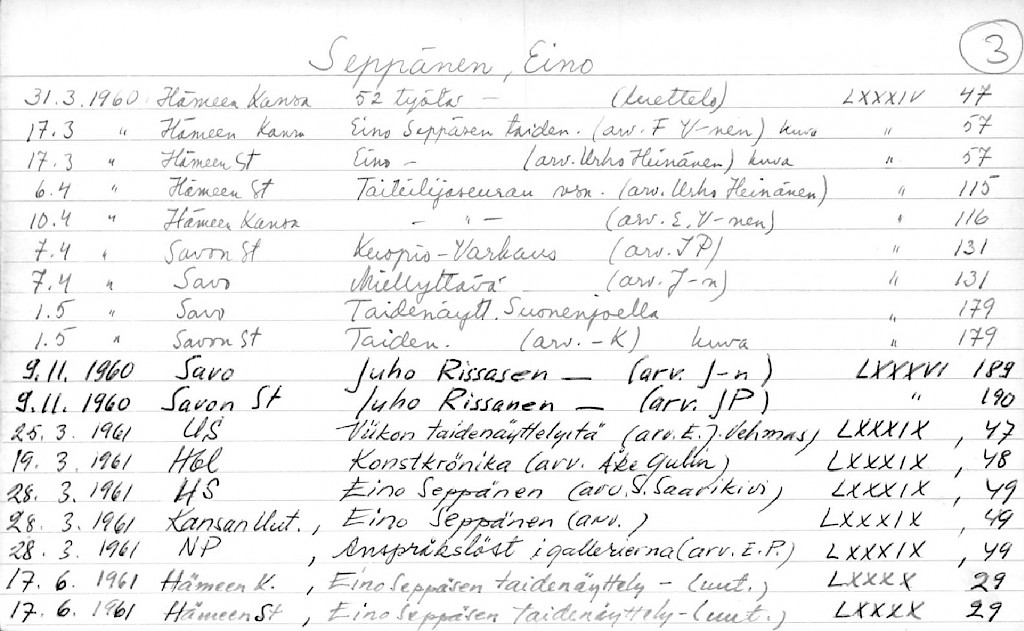 3
Seppänen, Eino
31.3.1960 Hämeen Kansa 52 työtä — (luettelo) LXXXIV 47
17.3 " Hämeen Kansa Eino Seppäsen taiden. (arv. F V-nen) kuva " 57
17.3 " Hämeen St Eino — (arv. Urho Heinänen) kuva " 57
6.4 " Hämeen St Taiteilijaseuran vsn. (arv. Urho Heinänen) " 115
10.4 " Hämeen Kansa — " — (arv. E. V-nen) " 116
7.4 " Savon St Kuopio-Varkaus (arv. JP) " 131
7.4 " Savo Miellyttävä - (arv. J-n) " 131
1.5 " Savo Taidenäytt. Suonenjoella " 179
1.5 " Savon St Taiden. (arv. -K) kuva " 179
9.11. 1960 Savo Juho Rissasen — (arv. J-n) LXXXVI 189
9.11. 1960 Savon St Juho Rissanen — (arv. JP) " 190
25. 3. 1961 US Viikon taidenäyttelyitä (arv. E. J. Vehmas) LXXXIX , 47
19. 3. 1961 Hbl Konstkrönika (arv. Åke Gulin) LXXXIX , 48
28. 3. 1961 HS Eino Seppänen (arv. S. Saarikivi) LXXXIX , 49
28. 3. 1961 Kansan Uut. , Eino Seppänen (arv.) LXXXIX , 49
28. 3. 1961 NP , Anspråkslöst i gallerierna (arv. E.P.) LXXXIX , 49
17. 6. 1961 Hämeen K. , Eino Seppäsen taidenäyttely - (uut.) LXXXX 29
17. 6. 1961 Hämeen St , Eino Seppäsen taidenäyttely - (uut.) LXXXX 29